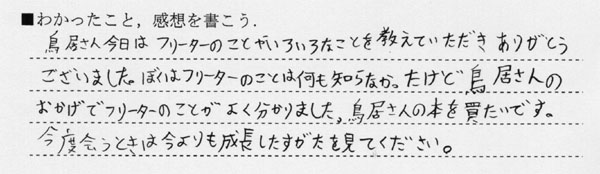 ■わかったこと，感想を書こう.
鳥居さん今日はフリーターのことやいろいろなことを教えていただきありがとう
ございました。ぼくはフリーターのことは何も知らなかったけど鳥居さんの
おかげでフリーターのことがよく分かりました。鳥居さんの本を買たいです。
今度会うときは今よりも成長したすがたを見てください。